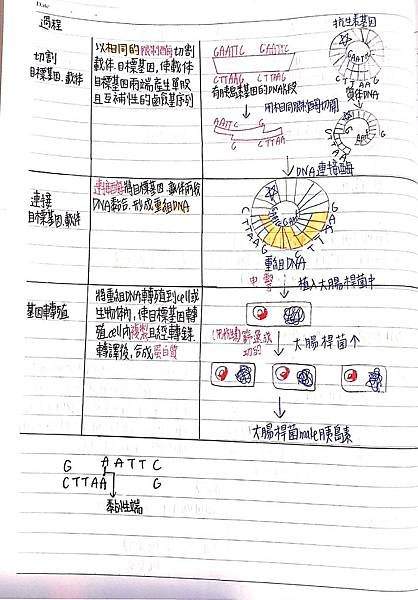 Date
過程
切割
目標基因.載体
以相同的限制酶切割
載体.目標基因,使載体
目標基因兩端產生單股
且互補性的鹼基序列
GAATTC GAATTC
CTTAAG CTTAAG
有胰島素基因的DNA片段
用相同限制酶切開
AATTC G
G CTTAA
抗生素基因
GAATTC
CTTAAG
質体DNA
DNA連接酶
連接
目標基因.載体
連接酶將目標基因.載体兩股
DNA黏合.形成重組DNA
CTTAAG
CTTAAG
重組DNA
電擊
植入大腸桿菌中
基因轉殖
將重組DNA轉殖到cell或
生物体內,使目標基因轉
殖cell內複製且經轉錄.
轉譯後,合成蛋白質
篩選成
功的
大腸桿菌↑
大腸桿菌make胰島素
G AATTC
CTTAA G
黏性端